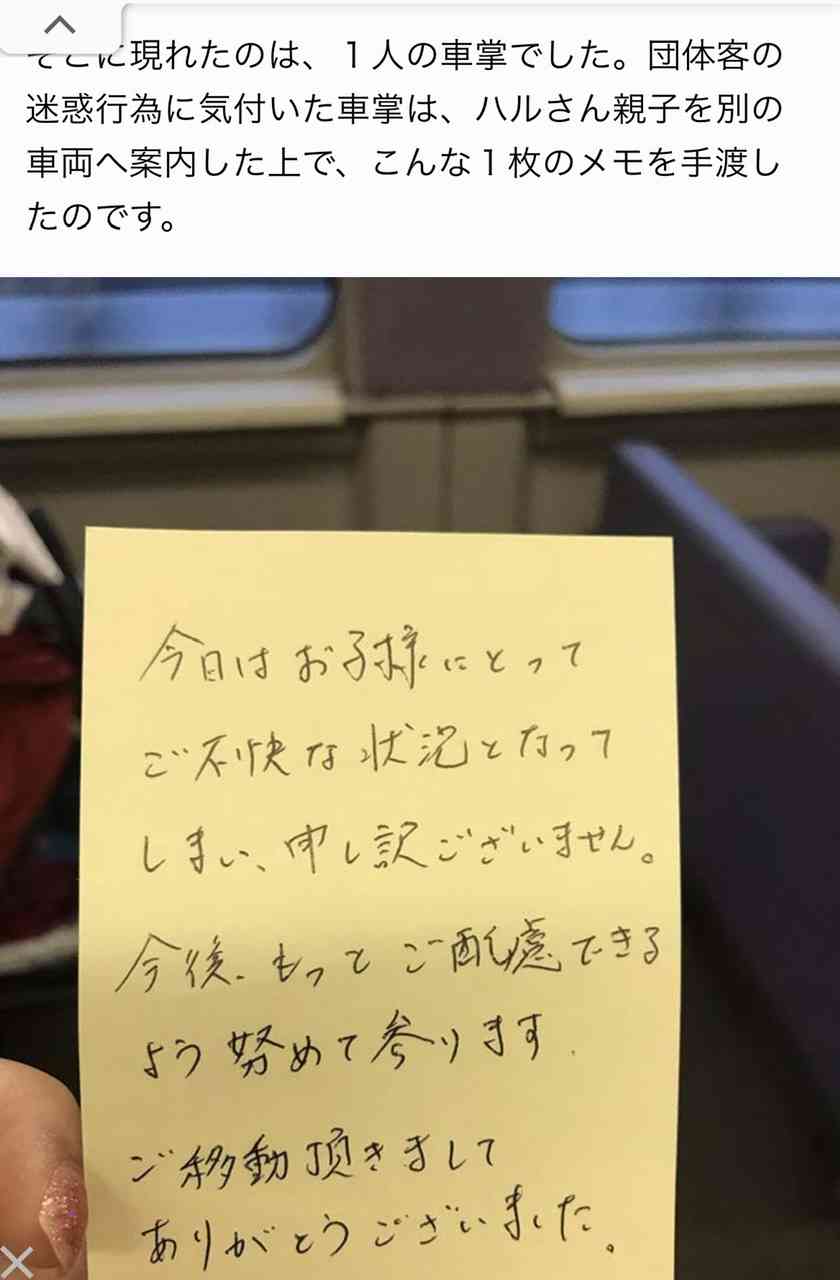 そこに現れたのは、１人の車掌でした。団体客の
迷惑行為に気付いた車掌は、ハルさん親子を別の
車両へ案内した上で、こんな１枚のメモを手渡し
たのです。
今日はお子様にとって
ご不快な状況となって
しまい、申し訳ございません。
今後、もっとご配慮できる
よう努めて参ります.
ご移動頂きまして
ありがとうございました。